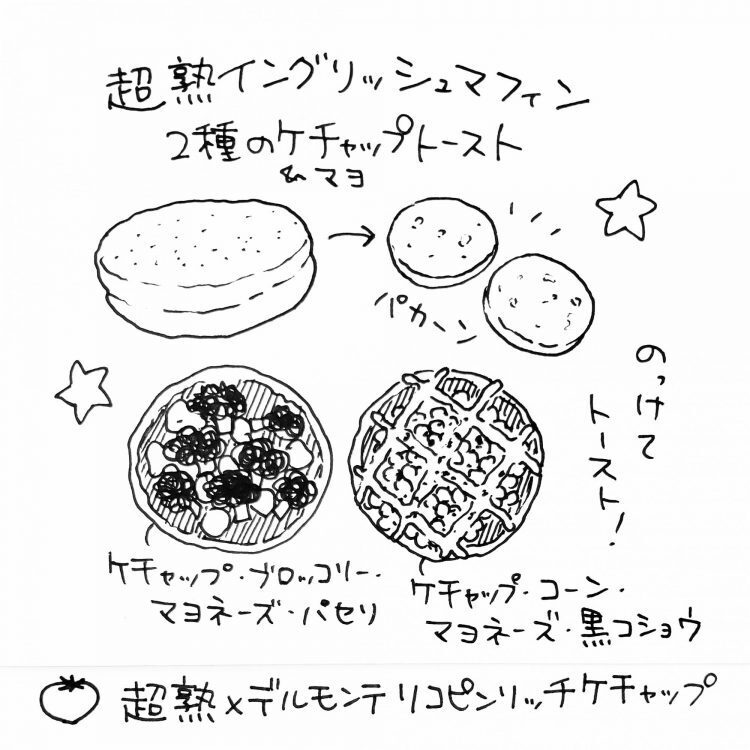 超熟イングリッシュマフィン
2種のケチャップトースト
&マヨ
パカーン
のっけて
トースト!
ケチャップ・ブロッコリー・
マヨネーズ・パセリ
ケチャップ・コーン・
マヨネーズ・黒コショウ
超熟×デルモンテリコピンリッチケチャップ